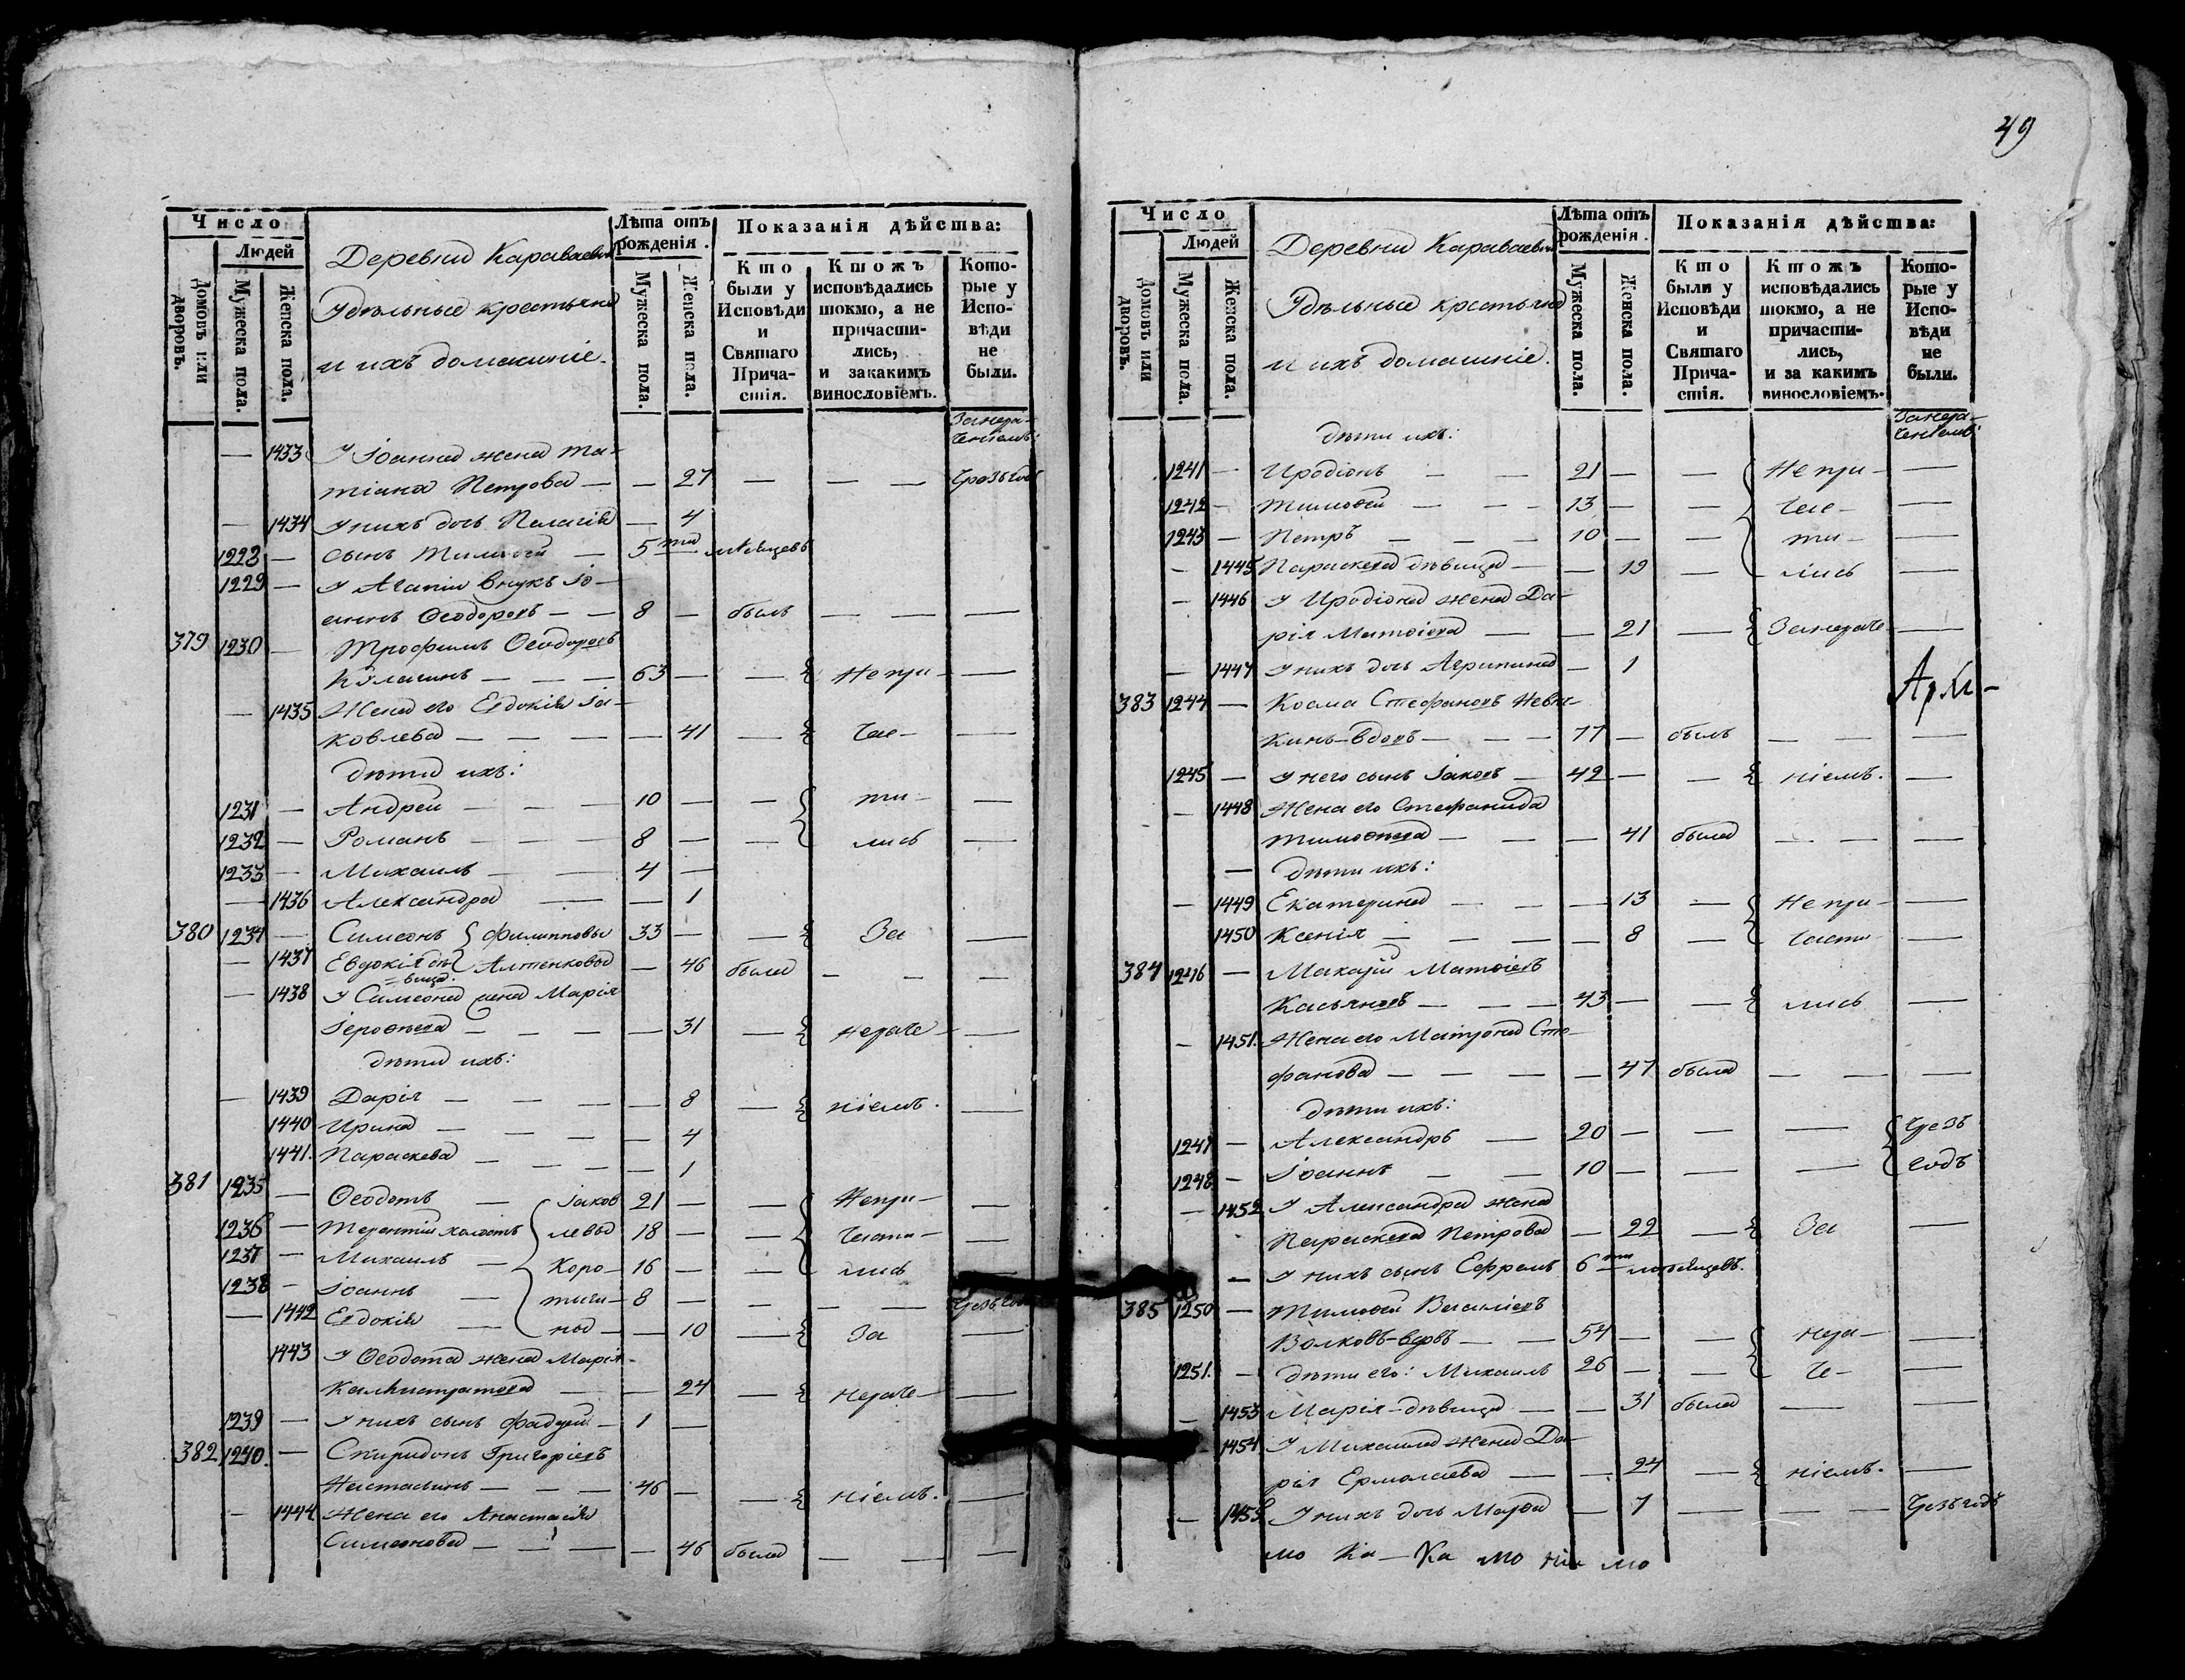 49
Число
Людей
Домовъ или дворовъ.
Мужеска пола.
Женска пола.
Деревни Караваевой
Удѣльные крестьяне
и ихъ домашніе.
Лѣта отъ рожденія.
Мужеска пола.
Женска пола.
Показанія дѣйства:
Кто были у Исповѣди и Святаго Причастія.
Ктожъ исповѣдались токмо, а не причастились, и закакимъ винословіемъ.
Которые у Исповѣди не были.
Занера-
ченіемъ:
— 1433 У Іоанна жена Та-
тіана Петрова — — 27 — — —
— 1434 У нихъ дочь Пелагія — 4
1228 — сынъ Тимофей — 5ти мѣсяцевъ
1229 — У Агапіи внукъ Іо-
аннъ Ѳеодоровъ — — 8 — былъ — — —
379 1230 — Трофимъ Ѳеодоровъ
— — — 63 — — Непри- —
— 1435 Жена его Евдокія Іа-
ковлева — — — — 41 — час- —
дѣти ихъ:
1231 — Андрей — — — 10 — — ти- —
1232 — Романъ — — — 8 — — лись —
1233 — Михаилъ — — 4 —
— 1436 Александра — — 1
380 1234 — Симеонъ Филипповы 33 — — За —
— 1437 Евдокія дѣ-
вица. — 46 была — — —
— 1438 У Симеона жена Марія
Іероѳеева — — — — 31 — нераче- —
дѣти ихъ:
— 1439 Дарія — — — — 8 — ніемъ. —
1440 Ирина — — — — 4
1441. Параскева — — — — 1
381 1235 — Ѳеодотъ — Іаков 21 — — Непри- —
1236 — Терентій холостъ левы 18 — — части- —
1237 — Михаилъ — Коро- 16 — — лись —
1238 — Іоаннъ — 8 — — — — Чрезъ годъ
— 1442 Евдокія — ны — — 10 — За —
1443 У Ѳеодота жена Марія
Каллистратова — — 24 — нераче- —
1239 — У нихъ сынъ Фаддей — 1 —
382 1240. — Спиридонъ Григорьевъ
— — — 46 — — ніемъ. —
— 1444 Жена его Анастасія
Симеонова — — — — 46 была — — —
Число
Людей
Домовъ или дворовъ.
Мужеска пола.
Женска пола.
Деревни Караваевой
Удѣльные крестьяне
и ихъ домашніе.
Лѣта отъ рожденія.
Мужеска пола.
Женска пола.
Показанія дѣйства:
Кто были у Исповѣди и Святаго Причастія.
Ктожъ исповѣдались токмо, а не причастились, и за какимъ винословіемъ.
Которые у Исповѣди не были.
Занера-
ченіемъ:
дѣти ихъ:
1241 — Иродіонъ — — 21 — — Непри- —
1242 — Тимофей — — — 13 — — час- —
1243 — Петръ — — — 10 — — ти- —
— 1445 Параскева дѣвица — — 19 — лись —
— 1446 У Иродіона жена Да-
рія Матвіева — — 21 — Занераче- —
— 1447 У нихъ дочь Агрипина — 1
383 1244 — Косма Стефановъ
вдовъ — — — 77 — былъ — — —
1245 — У него сынъ Іаковъ — 42 — — ніемъ. —
— 1448 Жена его Стефанида
Тимоѳеева — — — 41 была — — —
— дѣти ихъ:
— 1449 Екатерина — — — 13 — Непри- —
1450 Ксенія — — — — 8 — части- —
384 1246 — Макарій Матвіевъ
Касьяновъ — — — 43 — — лись —
— 1451. Жена его Матрона Сте-
фанова — — — — 47 была — — —
дѣти ихъ:
1247 — Александръ — 20 — — — Чрезъ
1248 — Іоаннъ — — 10 — — — годъ
— 1452 У Александра жена
Параскева Петрова — 22 — За —
— У нихъ сынъ Ефремъ 6ти мѣсяцевъ.
385 1250 — Тимофей Васильевъ
Волковъ-вдовъ — — 54 — — нера- —
1251. — дѣти его: Михаилъ 26 — — че- —
— 1453 Марія-дѣвица — — 31 была — —
— 1454 У Михаила жена Да-
рія Ермолаева — — 24 — ніемъ. —
— 1455 У нихъ дочь Марѳа — 7 — — — Чрезъ годъ